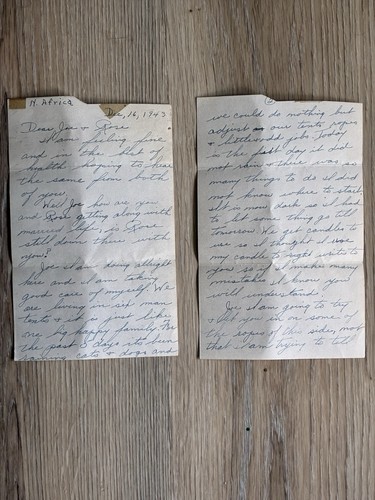 N. Africa
Dec, 16, 1943
Dear Joe & Rose
I am feeling fine
and in the best of
health & hoping to hear
the same from both
of you.
Well Joe how are you
and Rose getting along with
married life, is Rose
still down there with
you?
Joe I am doing allright
here and I am taking
good care of myself. We
are living in six man
tents & it is just like
one big happy family. For
the past 5 days its been
raining cats & dogs and
we could do nothing but
adjust our tents ropes
& little odd jobs. Today
is the first day it did
not rain & there was so
many things to do I did
not know where to start
still is now dark so I had
to let some thing go till
tomorrow. We get candles to
use so I thought I use
my candle to night write to
you so if I make many
mistakes I know you
will understand.
Joe I am going to try
& let you in on some of
the dopes of this side, not
that I am trying to tell